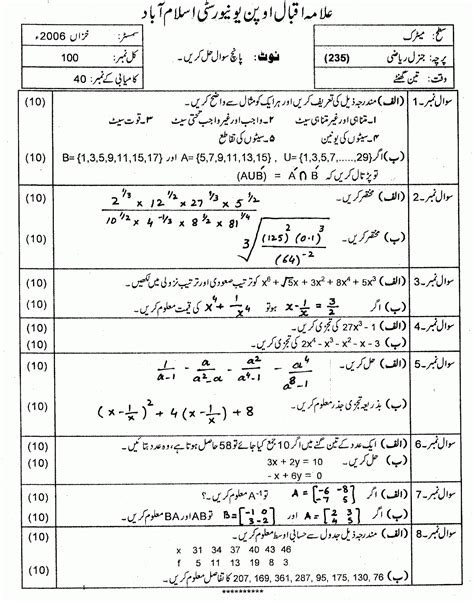 علامہ اقبال اوپن یونیورسٹی اسلام آباد
سطح: میٹرک سمسٹر: خزاں 2006ء
پرچہ: جنرل ریاضی (235) نوٹ: پانچ سوال حل کریں۔ کل نمبر: 100
وقت: تین گھنٹے کامیابی کے نمبر: 40
سوال نمبر۔1 (الف) مندرجہ ذیل کی تعریف کریں اور ہر ایک کو مثال سے واضح کریں۔ (10)
۱۔ متناہی اور غیر متناہی سیٹ ۲۔ واجب اور غیر واجب تحتی سیٹ ۳۔ قوت سیٹ
۴۔ سیٹوں کی یونین ۵۔ سیٹوں کا تقاطع
(ب) اگر U= {1,3,5,7,......,29} , A= {5,7,9,11,13,15} اور B= {1,3,5,9,11,15,17} (10)
تو پڑتال کریں کہ (AUB)′ = A′∩B′
سوال نمبر۔2 (الف) مختصر کریں۔ 2^1/3 x 12^1/2 x 27^1/3 x 5^1/2 / 10^1/2 x 4^-1/3 x 8^1/2 x 81^1/4 (10)
(ب) مختصر کریں۔ 3√((125)^2 (0.1)^3 / (64)^-2) (10)
سوال نمبر۔3 (الف) x^6 + √5x + 3x^2 + 8x^4 + 5x^3 کو ترتیب صعودی اور ترتیب نزولی میں لکھیں۔ (10)
(ب) اگر x - 1/x = 3/2 ہو تو x^4 + 1/x^4 کی قیمت معلوم کریں۔ (10)
سوال نمبر۔4 (الف) 27x^3 - 1 کی تجزی کریں۔ (10)
(ب) 2x^4 - x^3 - x^2 - x - 3 کی تجزی کریں۔ (10)
سوال نمبر۔5 (الف) حل کریں۔ 1/a-1 - a/a^2-a - a^2/a^4-1 - a^4/a^8-1 (10)
(ب) بذریعہ تجزی جذر معلوم کریں۔ (x - 1/x)^2 + 4(x - 1/x) + 8 (10)
سوال نمبر۔6 (الف) ایک عدد کے تین گنے میں اگر 10 جمع کیا جائے تو 58 حاصل ہوتا ہے، وہ عدد بتائیں۔ (10)
(ب) حل کریں۔ 3x + 2y = 10 (10)
- x + 6y = 0
سوال نمبر۔7 (الف) اگر A = [-6 -8 / -7 5] تو A^-1 معلوم کریں؟ (10)
(ب) اگر A = [2 3 / 4 5] اور B = [-1 0 / 3 -2] تو AB اور BA معلوم کریں۔ (10)
سوال نمبر۔8 (الف) مندرجہ ذیل جدول سے حسابی اوسط معلوم کریں۔ (10)
x 31 34 37 40 43 46
f 5 11 13 19 8 3
(ب) 207, 169, 361, 287, 95, 175, 130, 76 کا تفاصل معلوم کریں۔ (10)
**********